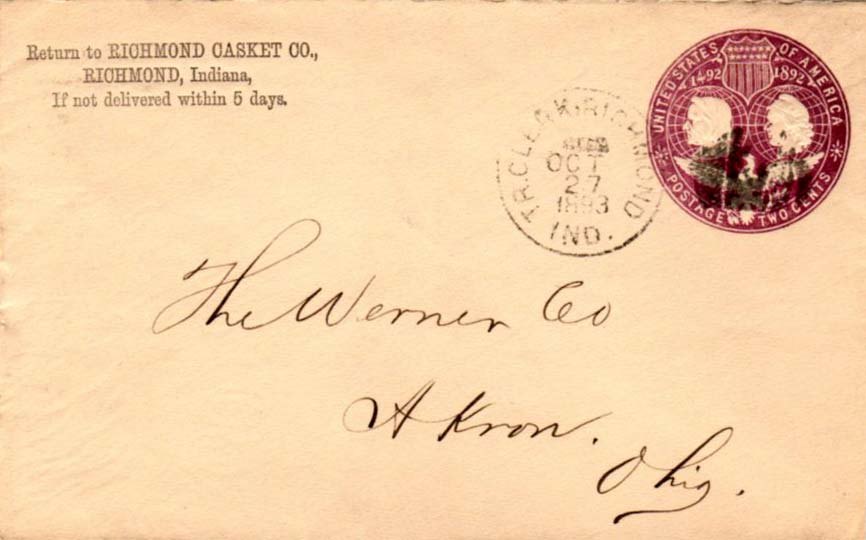 Return to RICHMOND CASKET CO.,
RICHMOND, Indiana,
If not delivered within 5 days.
UNITED STATES OF AMERICA
1492 1892
POSTAGE TWO CENTS
TR. CLERK. RICHMOND
OCT
27
1893
IND.
The Werner Co
Akron.
Ohio.